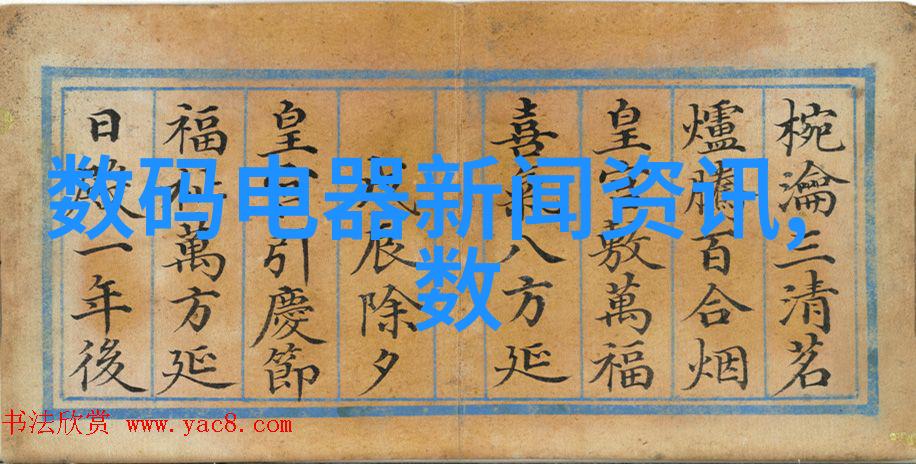 数码电器新闻资讯,
数
椀瀹三清茗
爐騰百合烟
皇敷萬福
喜氣八方延
辰除夕
皇引慶節
福萬方延
日一年後
书法欣赏 www.yac8.com